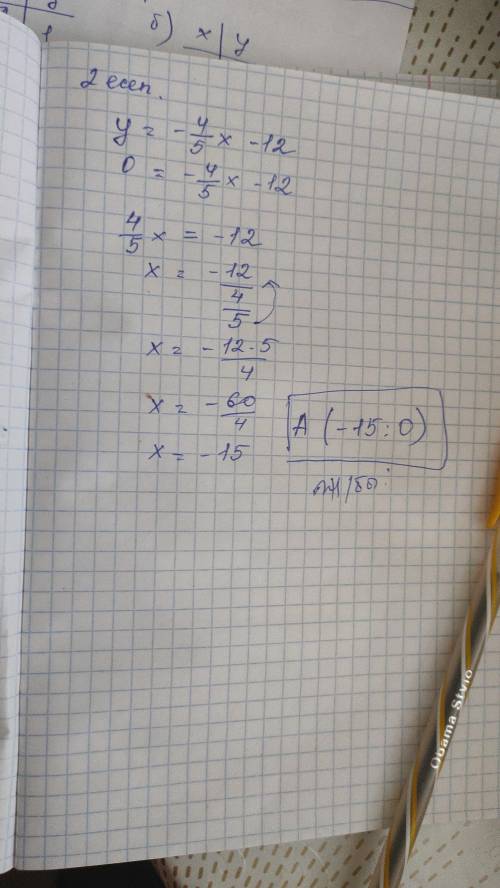 б) x | y
1
2 есеп.
y = -4/5 x - 12
0 = -4/5 x - 12
4/5 x = -12
x = -12/(4/5)
x = -(12·5)/4
x = -60/4
A (-15; 0)
x = -15
Obama Stvio